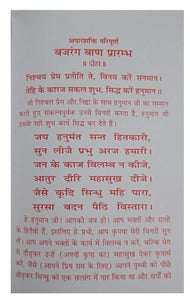 अपराशक्ति परिपूर्ण
बजरंग बाण प्रारम्भ
॥ दोहा ॥
निश्चय प्रेम प्रतीति ते, विनय करें सनमान।
तेहि के कारज सकल शुभ, सिद्ध करैं हनुमान॥
जो निश्चल प्रेम और निष्ठा के साथ हनुमान जी का सम्मान
करते हुए संकल्पपूर्वक उनसे विनती करता है, हनुमान जी
उसके सारे शुभ कार्य सिद्ध कर देते हैं।
जय हनुमंत सन्त हितकारी,
सुन लीजै प्रभु अरज हमारी।
जन के काज विलम्ब न कीजै,
आतुर दौरि महासुख दीजै।
जैसे कूदि सिन्धु महि पारा,
सुरसा बदन पैठि विस्तारा।
हे हनुमान जी! आपकी जय हो। आप भक्तों और सन्तों
के हितैषी हैं, इसलिए हे प्रभो, आप कृपया मेरी विनती सुन
लें। आप अपने भक्तों के कार्य में विलम्ब न करें, बल्कि वेग
से दौड़कर उन्हें (अपनी कृपा का) महासुख देकर कृतार्थ
करें, जैसे (आपने प्रिय राम के लिए) आपने पृथ्वी को पीछे
छोड़कर सिन्धु को एक छलांग में पार किया था और सर्पों की